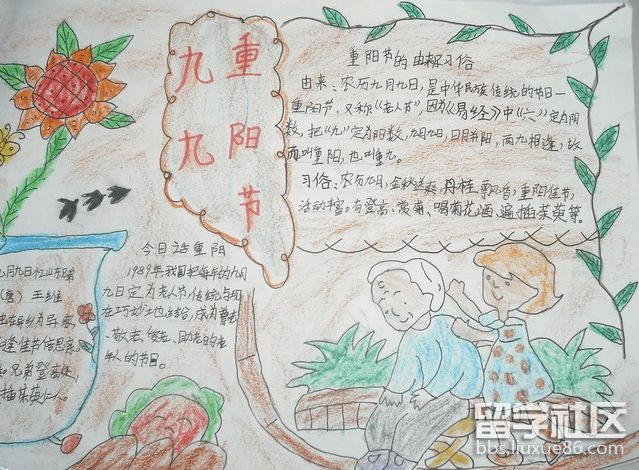 九九
重阳节
重阳节的由来和习俗
由来：农历九月九日，是中华民族传统的节日一
重阳节，又称《老人节》，因为《易经》中《六》定为阴
数，把《九》定为阳数，九月九日，日月并阳，两九相逢，故
而叫重阳，也叫重九。
习俗：农历九月，金秋送爽，丹桂飘香，重阳佳节，
活动丰富。有登高、赏菊、喝菊花酒、遍插茱萸等。
今日话重阳
1989年我国把每年的九月
九日定为老人节，传统与现
在巧妙地结合，成为尊老、
敬老、爱老、助老的老
年人的节日。
九月九日忆山东兄弟
（唐）王维
在异乡为异客，
逢佳节倍思亲。
知兄弟登高处，
插茱萸少一人。
留学社区
bbs.liuxue86.com